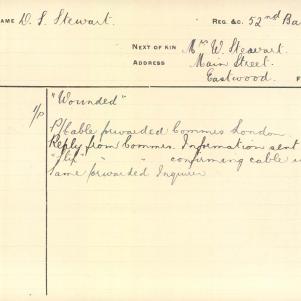 NAME D. S. Stewart. REG. &C. 52nd Ba
NEXT OF KIN Mrs W. Stewart.
ADDRESS Main Street.
Eastwood. F
"Wounded"
1/P P/Cable forwarded Commrs London.
Reply from Commrs. Information sent
"Slip" " " confirming cable
Same forwarded Inquirer